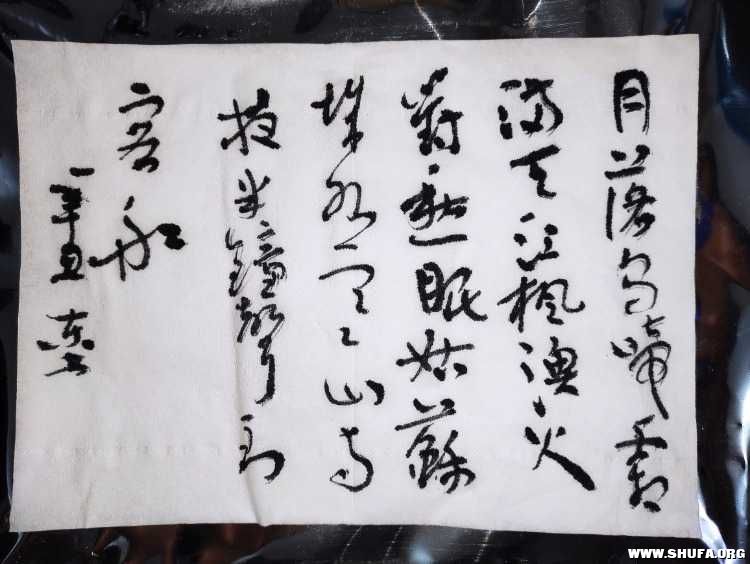 月落乌啼霜
满天江枫渔火
对愁眠姑蘇
城外寒山寺
夜半鐘聲到
客船
辛丑
WWW.SHUFA.ORG